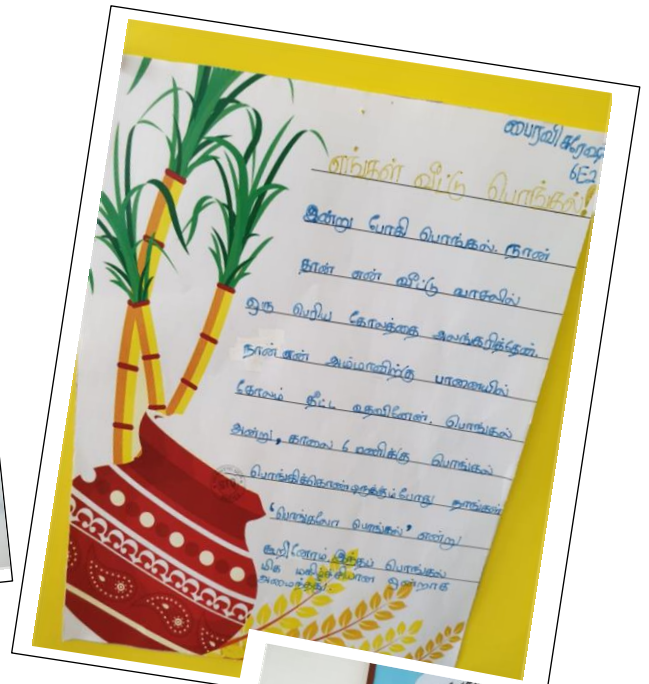 பைரவி சுரேஷ்
6E2
எங்கள் வீட்டு பொங்கல்!
இன்று போகி பொங்கல். நான்
தான் என் வீட்டு வாசலில்
ஒரு பெரிய கோலத்தை அலங்கரித்தேன்.
நான் என் அம்மாவிற்கு பானையில்
கோலம் தீட்ட உதவினேன். பொங்கல்
அன்று, காலை 6 மணிக்கு பொங்கல்
பொங்கிக்கொண்டிருக்கும்போது நாங்கள்
'பொங்கலோ பொங்கல்' என்று
கூறினோம். இந்தப் பொங்கல்
மிக மகிழ்ச்சியான ஒன்றாக
அமைந்தது.